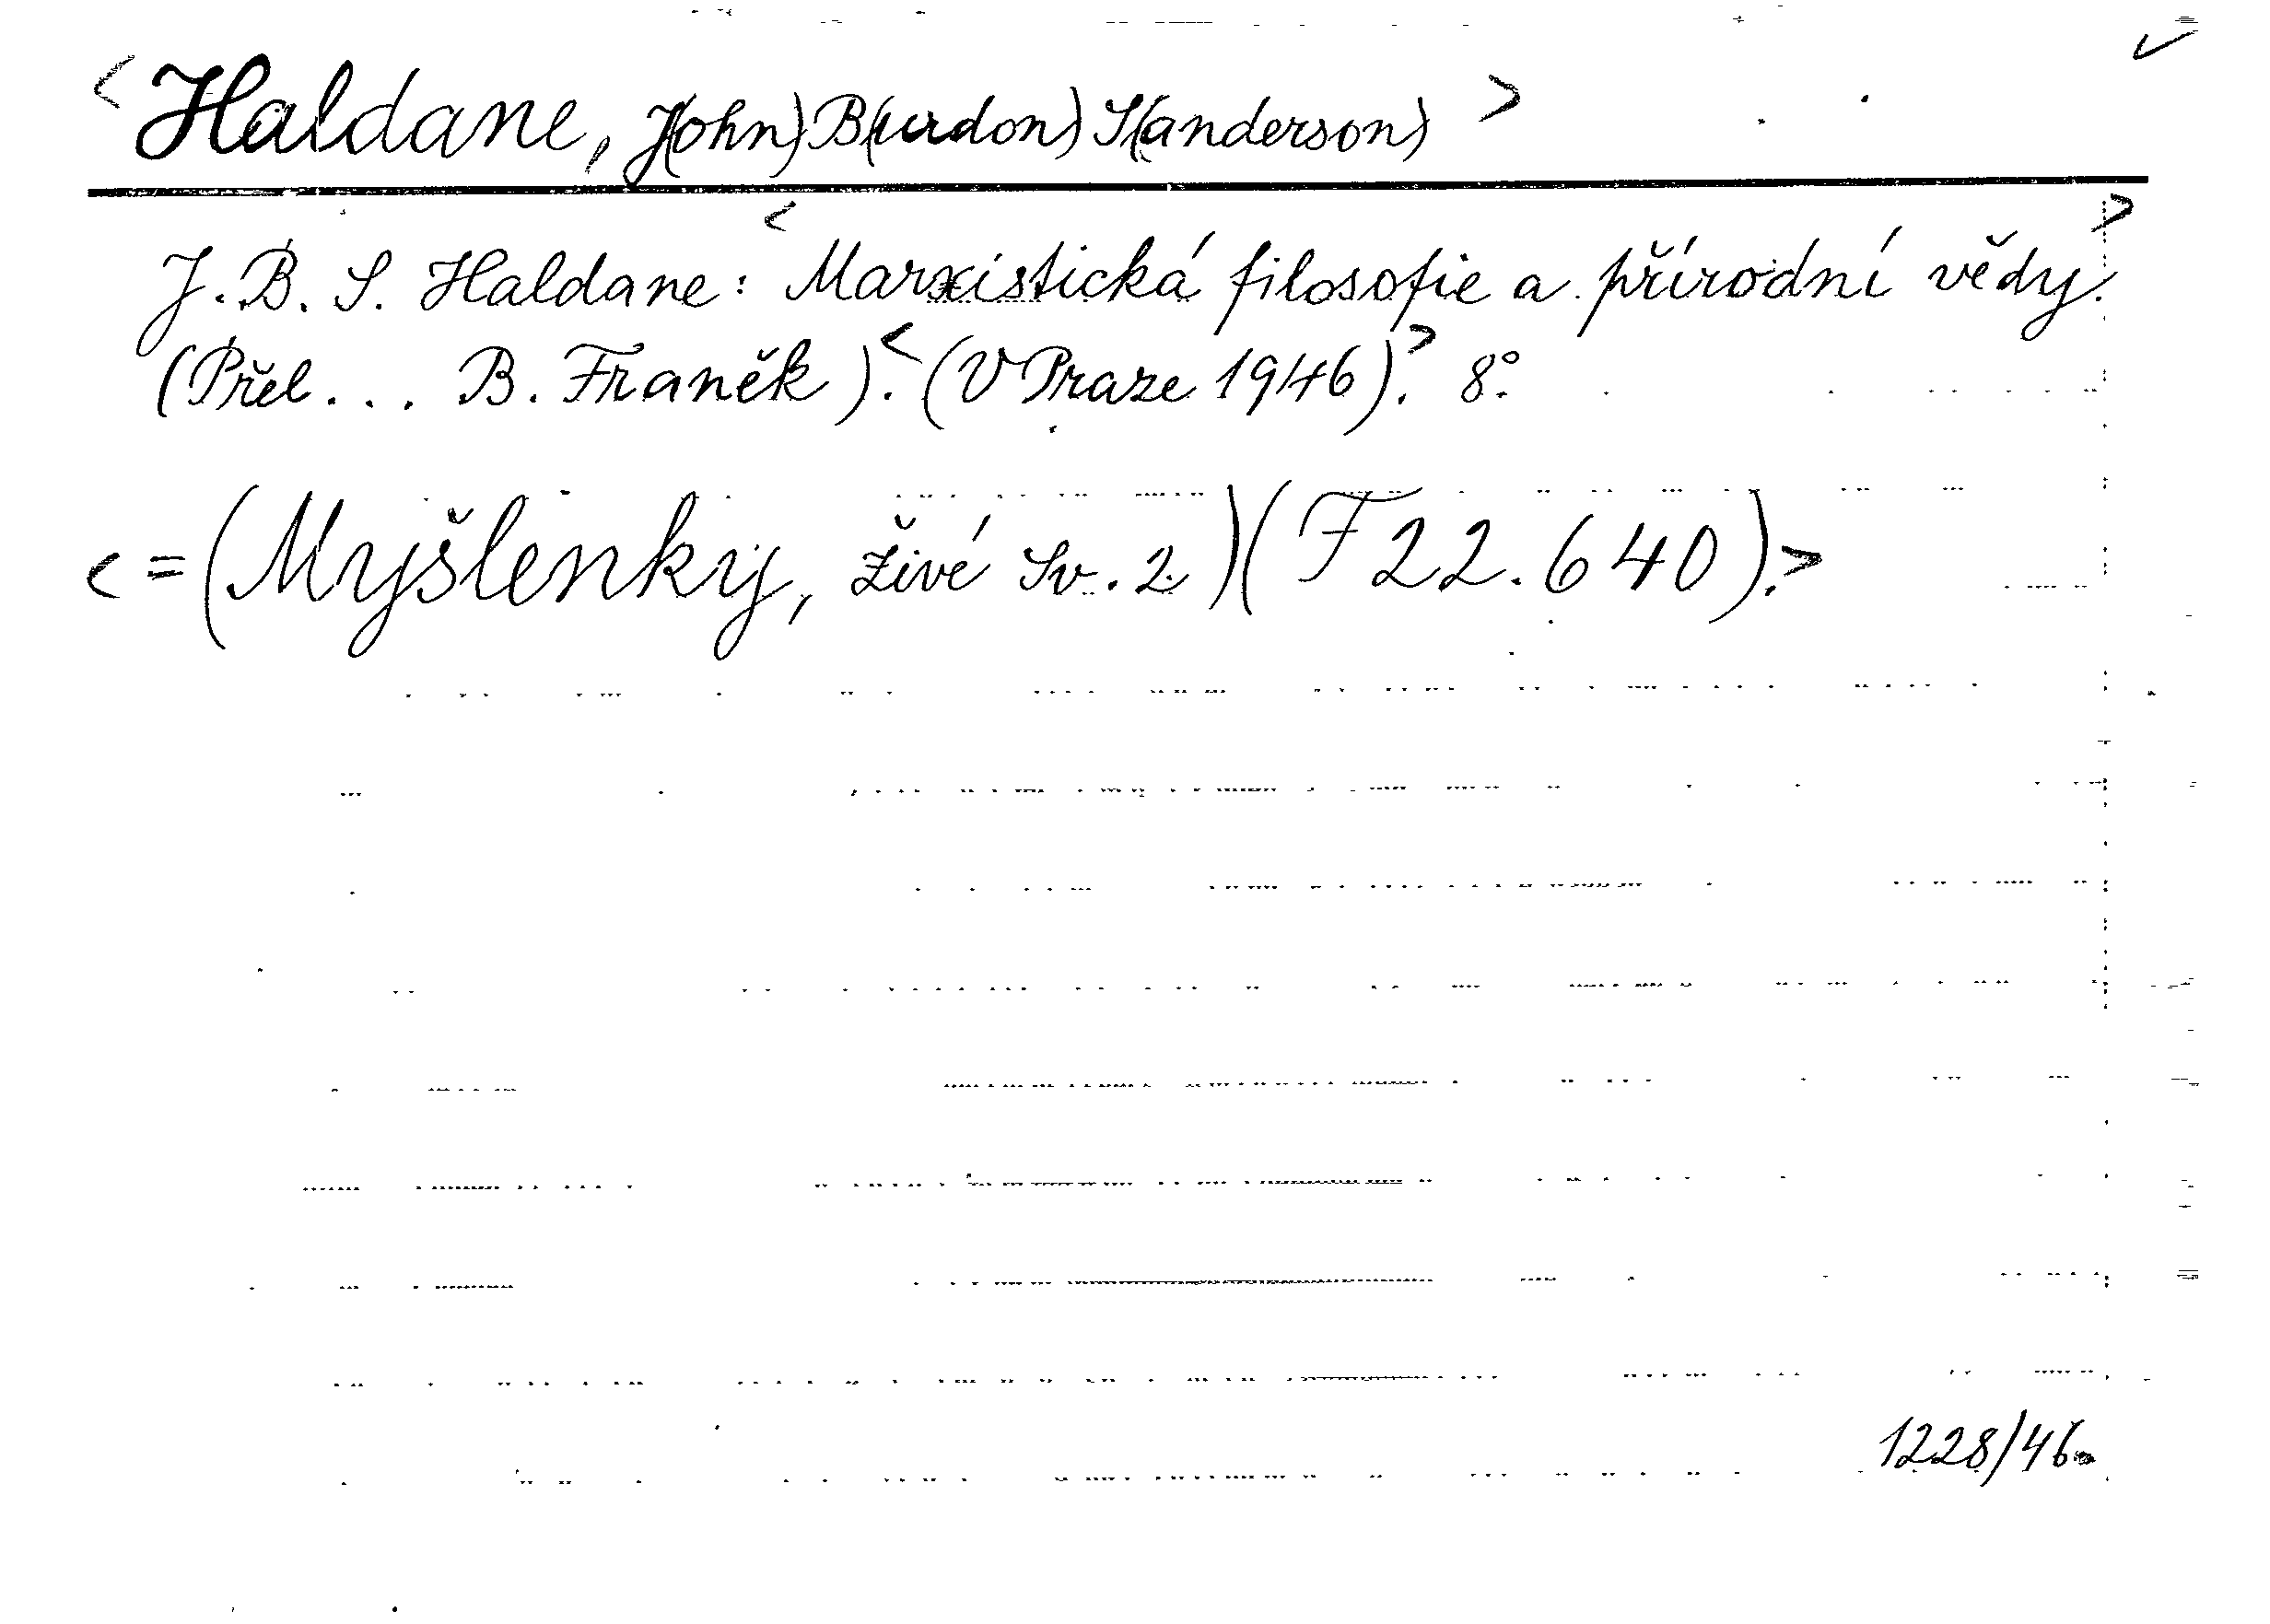 <Haldane, J(ohn) B(urdon) S(anderson)>
J. B. S. Haldane: <Marxistická filosofie a přírodní vědy>.
(Přel... B. Franěk). <(V Praze 1946).> 8°.
<=(Myšlenky, živé Sv. 2.)(F 22.640).>
1228/46.